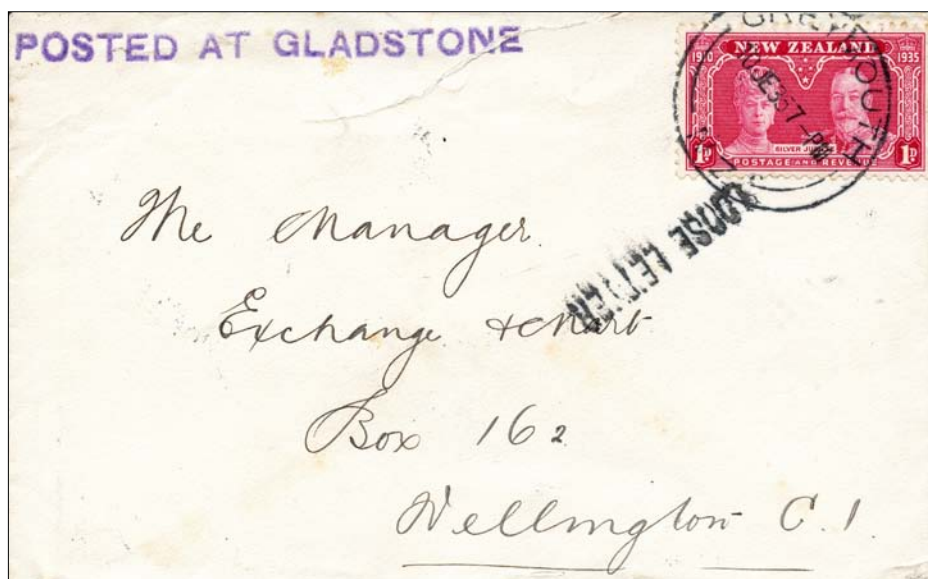 POSTED AT GLADSTONE
GREYMOUTH
NEW ZEALAND
1910 1935
SILVER JUBILEE
1D 1D
POSTAGE AND REVENUE
LOOSE LETTER
The Manager
Exchange & Mart
Box 162
Wellington C.1